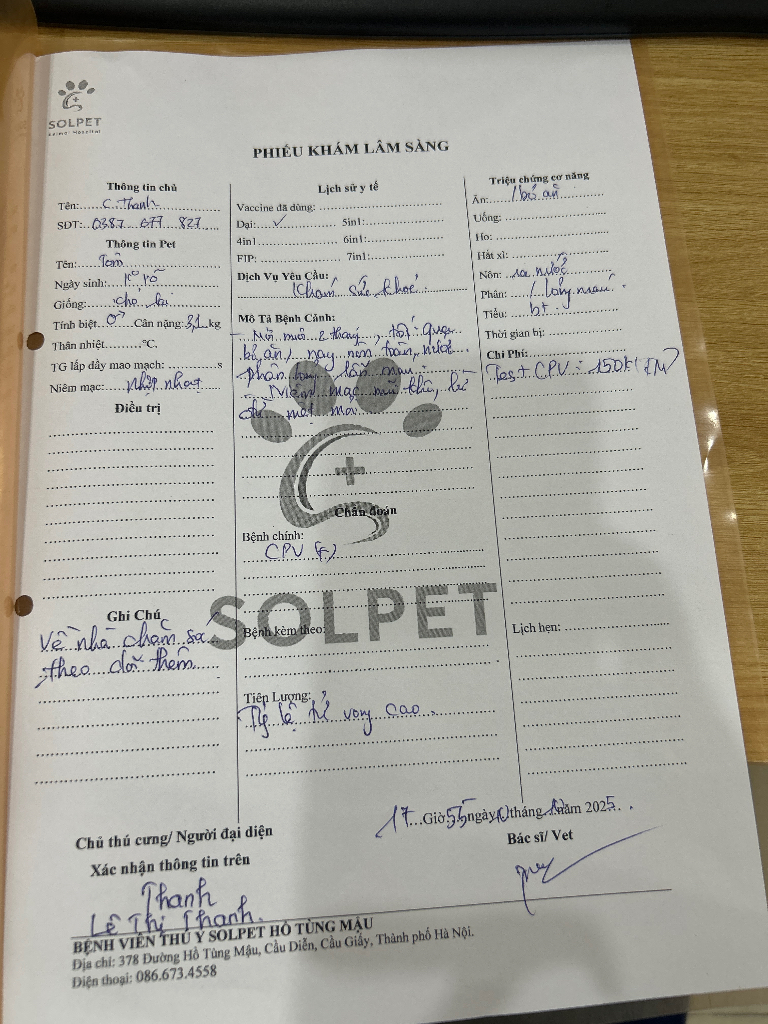 SOLPET
Animal Hospital
PHIẾU KHÁM LÂM SÀNG
Thông tin chủ
Tên: C. Thanh
SĐT: 0387 677 827
Thông tin Pet
Tên:
Ngày sinh: k° rõ
Giống: chó
Tính biệt: ♂ Cân nặng: 3,1 kg
Thân nhiệt °C.
TG lấp đầy mao mạch: s
Niêm mạc: nhợt nhạt
Điều trị
Ghi Chú
Về nhà chăm só
theo dõi thêm
Lịch sử y tế
Vaccine đã dùng:
Dại: ✓ 5in1:
4in1 6in1:
FIP: 7in1:
Dịch Vụ Yêu Cầu:
Khám sức khoẻ
Mô Tả Bệnh Cảnh:
- Mới nuôi 2 tháng, tối qua
bỏ ăn, nay nôn toàn nước
phân lẫn máu
- Niêm mạc
Chẩn đoán
Bệnh chính:
CPV (+)
Bệnh kèm theo:
Tiên Lượng:
Tỷ lệ tử vong cao.
SOLPET
Triệu chứng cơ năng
Ăn: bỏ ăn
Uống:
Ho:
Hắt xì:
Nôn: ra nước
Phân: lỏng máu
Tiểu: bt
Thời gian bị:
Chi Phí:
Test CPV: 150k
Lịch hẹn:
17 Giờ 55 ngày tháng năm 2025.
Bác sĩ/ Vet
Chủ thú cưng/ Người đại diện
Xác nhận thông tin trên
Thanh
Lê Thị Thanh
BỆNH VIỆN THÚ Y SOLPET HỒ TÙNG MẬU
Địa chỉ: 378 Đường Hồ Tùng Mậu, Cầu Diễn, Cầu Giấy, Thành phố Hà Nội.
Điện thoại: 086.673.4558